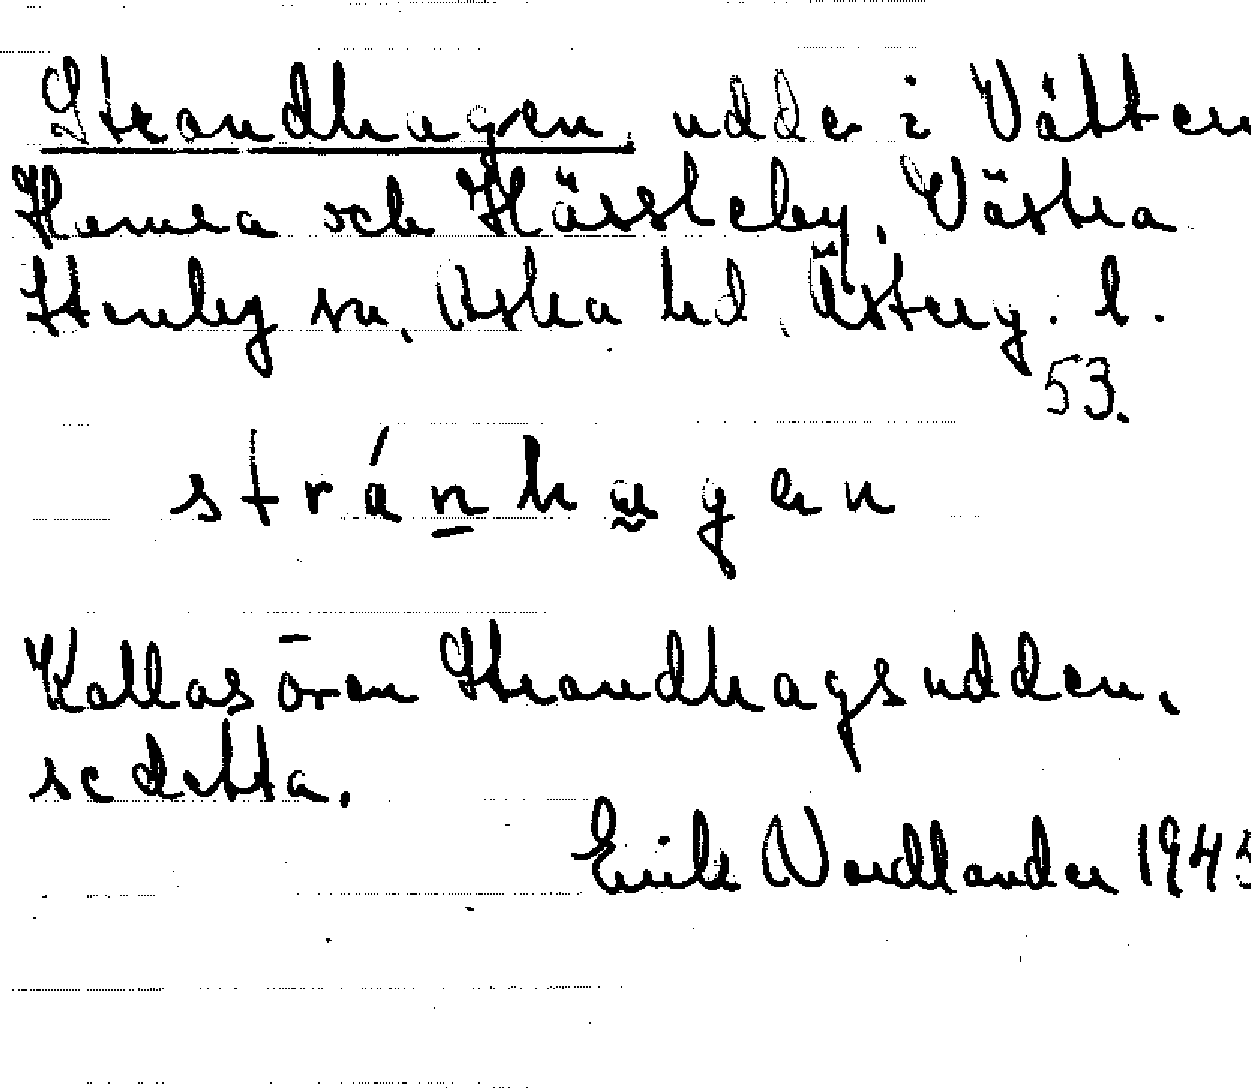 Strandhagen, udde i Vättern
och Hässleby, Västra
Stenby sn, Aska hd, Österg. l.
53.
stránhagen
Kallas även Strandhagsudden,
se detta.
Erik Nordlander